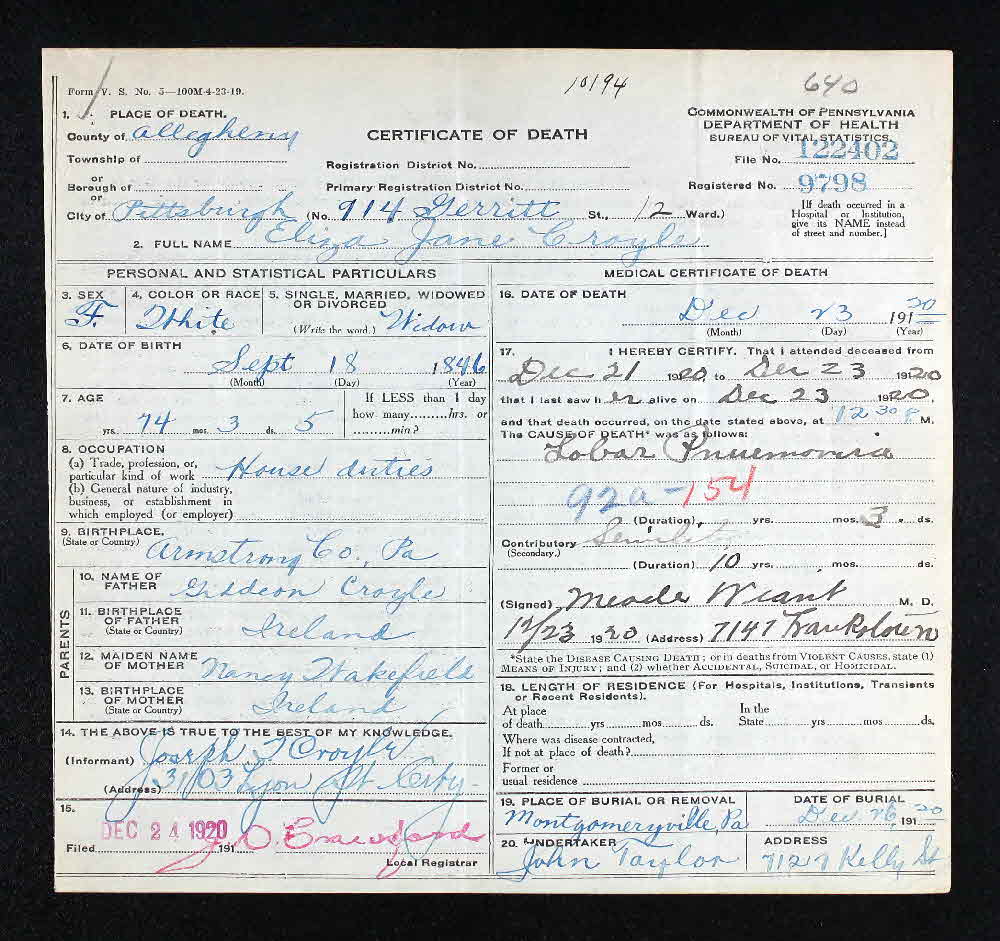 Form V. S. No. 5—100M-4-23-19.
10194
640
1. PLACE OF DEATH.
County of Allegheny
Township of
or
Borough of
or
City of Pittsburgh (No. 914 Gerritt St., 12 Ward.)
CERTIFICATE OF DEATH
Registration District No.
Primary Registration District No.
COMMONWEALTH OF PENNSYLVANIA
DEPARTMENT OF HEALTH
BUREAU OF VITAL STATISTICS.
File No. 122402
Registered No. 9798
[If death occurred in a
Hospital or Institution,
give its NAME instead
of street and number.]
2. FULL NAME Eliza Jane Croyle
PERSONAL AND STATISTICAL PARTICULARS
3. SEX
F.
4. COLOR OR RACE
White
5. SINGLE, MARRIED, WIDOWED
OR DIVORCED
(Write the word.) Widow
6. DATE OF BIRTH
Sept 18 1846
(Month) (Day) (Year)
7. AGE
74 yrs. 3 mos. 5 ds.
If LESS than 1 day
how many.........hrs. or
.........min?
8. OCCUPATION
(a) Trade, profession, or,
particular kind of work House duties
(b) General nature of industry,
business, or establishment in
which employed (or employer)
9. BIRTHPLACE,
(State or Country) Armstrong Co., Pa
PARENTS
10. NAME OF
FATHER Giddeon Croyle
11. BIRTHPLACE
OF FATHER
(State or Country) Ireland
12. MAIDEN NAME
OF MOTHER Nancy Wakefield
13. BIRTHPLACE
OF MOTHER
(State or Country) Ireland
14. THE ABOVE IS TRUE TO THE BEST OF MY KNOWLEDGE.
(Informant) Joseph T Croyle
(Address) 3103 Lyon St
15.
DEC 24 1920
Filed 191
Local Registrar
MEDICAL CERTIFICATE OF DEATH
16. DATE OF DEATH
Dec 23 191 20
(Month) (Day) (Year)
17. I HEREBY CERTIFY. That I attended deceased from
Dec 21 1920, to Dec 23 1920
that I last saw her alive on Dec 23 1920
and that death occurred, on the date stated above, at 12 30 P M.
The CAUSE OF DEATH* was as follows:
Lobar Pnuemonia
92a-154
(Duration) yrs. mos. 3 ds.
Contributory
(Secondary.)
(Duration) 10 yrs. mos. ds.
(Signed) Meade Wiant M. D.
12/23 1920 (Address) 7147 Frankstown
*State the DISEASE CAUSING DEATH; or in deaths from VIOLENT CAUSES, state (1)
MEANS OF INJURY; and (2) whether ACCIDENTAL, SUICIDAL, OR HOMICIDAL.
18. LENGTH OF RESIDENCE (For Hospitals, Institutions, Transients
or Recent Residents).
At place In the
of death yrs mos ds. State yrs mos ds.
Where was disease contracted,
If not at place of death?
Former or
usual residence
19. PLACE OF BURIAL OR REMOVAL
Montgomeryville, Pa
DATE OF BURIAL
Dec 26, 191 20
20. UNDERTAKER
John Taylor
ADDRESS
7127 Kelly St